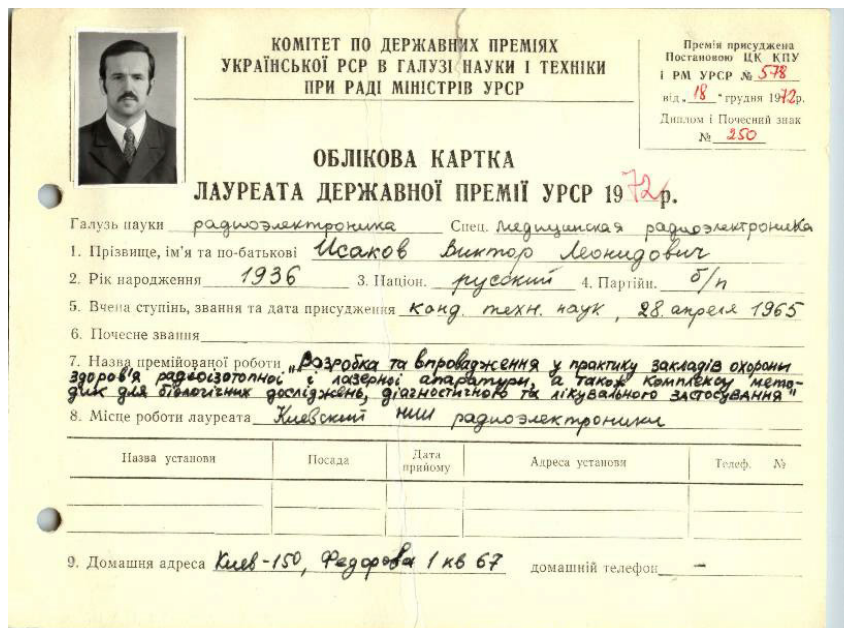 КОМІТЕТ ПО ДЕРЖАВНИХ ПРЕМІЯХ
УКРАЇНСЬКОЇ РСР В ГАЛУЗІ НАУКИ І ТЕХНІКИ
ПРИ РАДІ МІНІСТРІВ УРСР
Премія присуджена
Постановою ЦК КПУ
і РМ УРСР № 578
від „18" грудня 1972р.
Диплом і Почесний знак
№ 250
ОБЛІКОВА КАРТКА
ЛАУРЕАТА ДЕРЖАВНОЇ ПРЕМІЇ УРСР 1972р.
Галузь науки радиоэлектроника Спец. медицинская радиоэлектроника
1. Прізвище, ім'я та по-батькові Исаков Виктор Леонидович
2. Рік народження 1936 3. Націон. русский 4. Партійн. б/п
5. Вчена ступінь, звання та дата присудження канд. техн. наук, 28. апреля 1965
6. Почесне звання
7. Назва премійованої роботи „Розробка та впровадження у практику закладів охорони
здоров'я радіоізотопної і лазерної апаратури, а також комплексу мето-
дик для біологічних досліджень, діагностичного та лікувального застосування"
8. Місце роботи лауреата Киевский НИИ радиоэлектроники
Назва установи Посада Дата прийому Адреса установи Телеф. №
9. Домашня адреса Киев-150, Федорова 1 кв 67 домашній телефон –